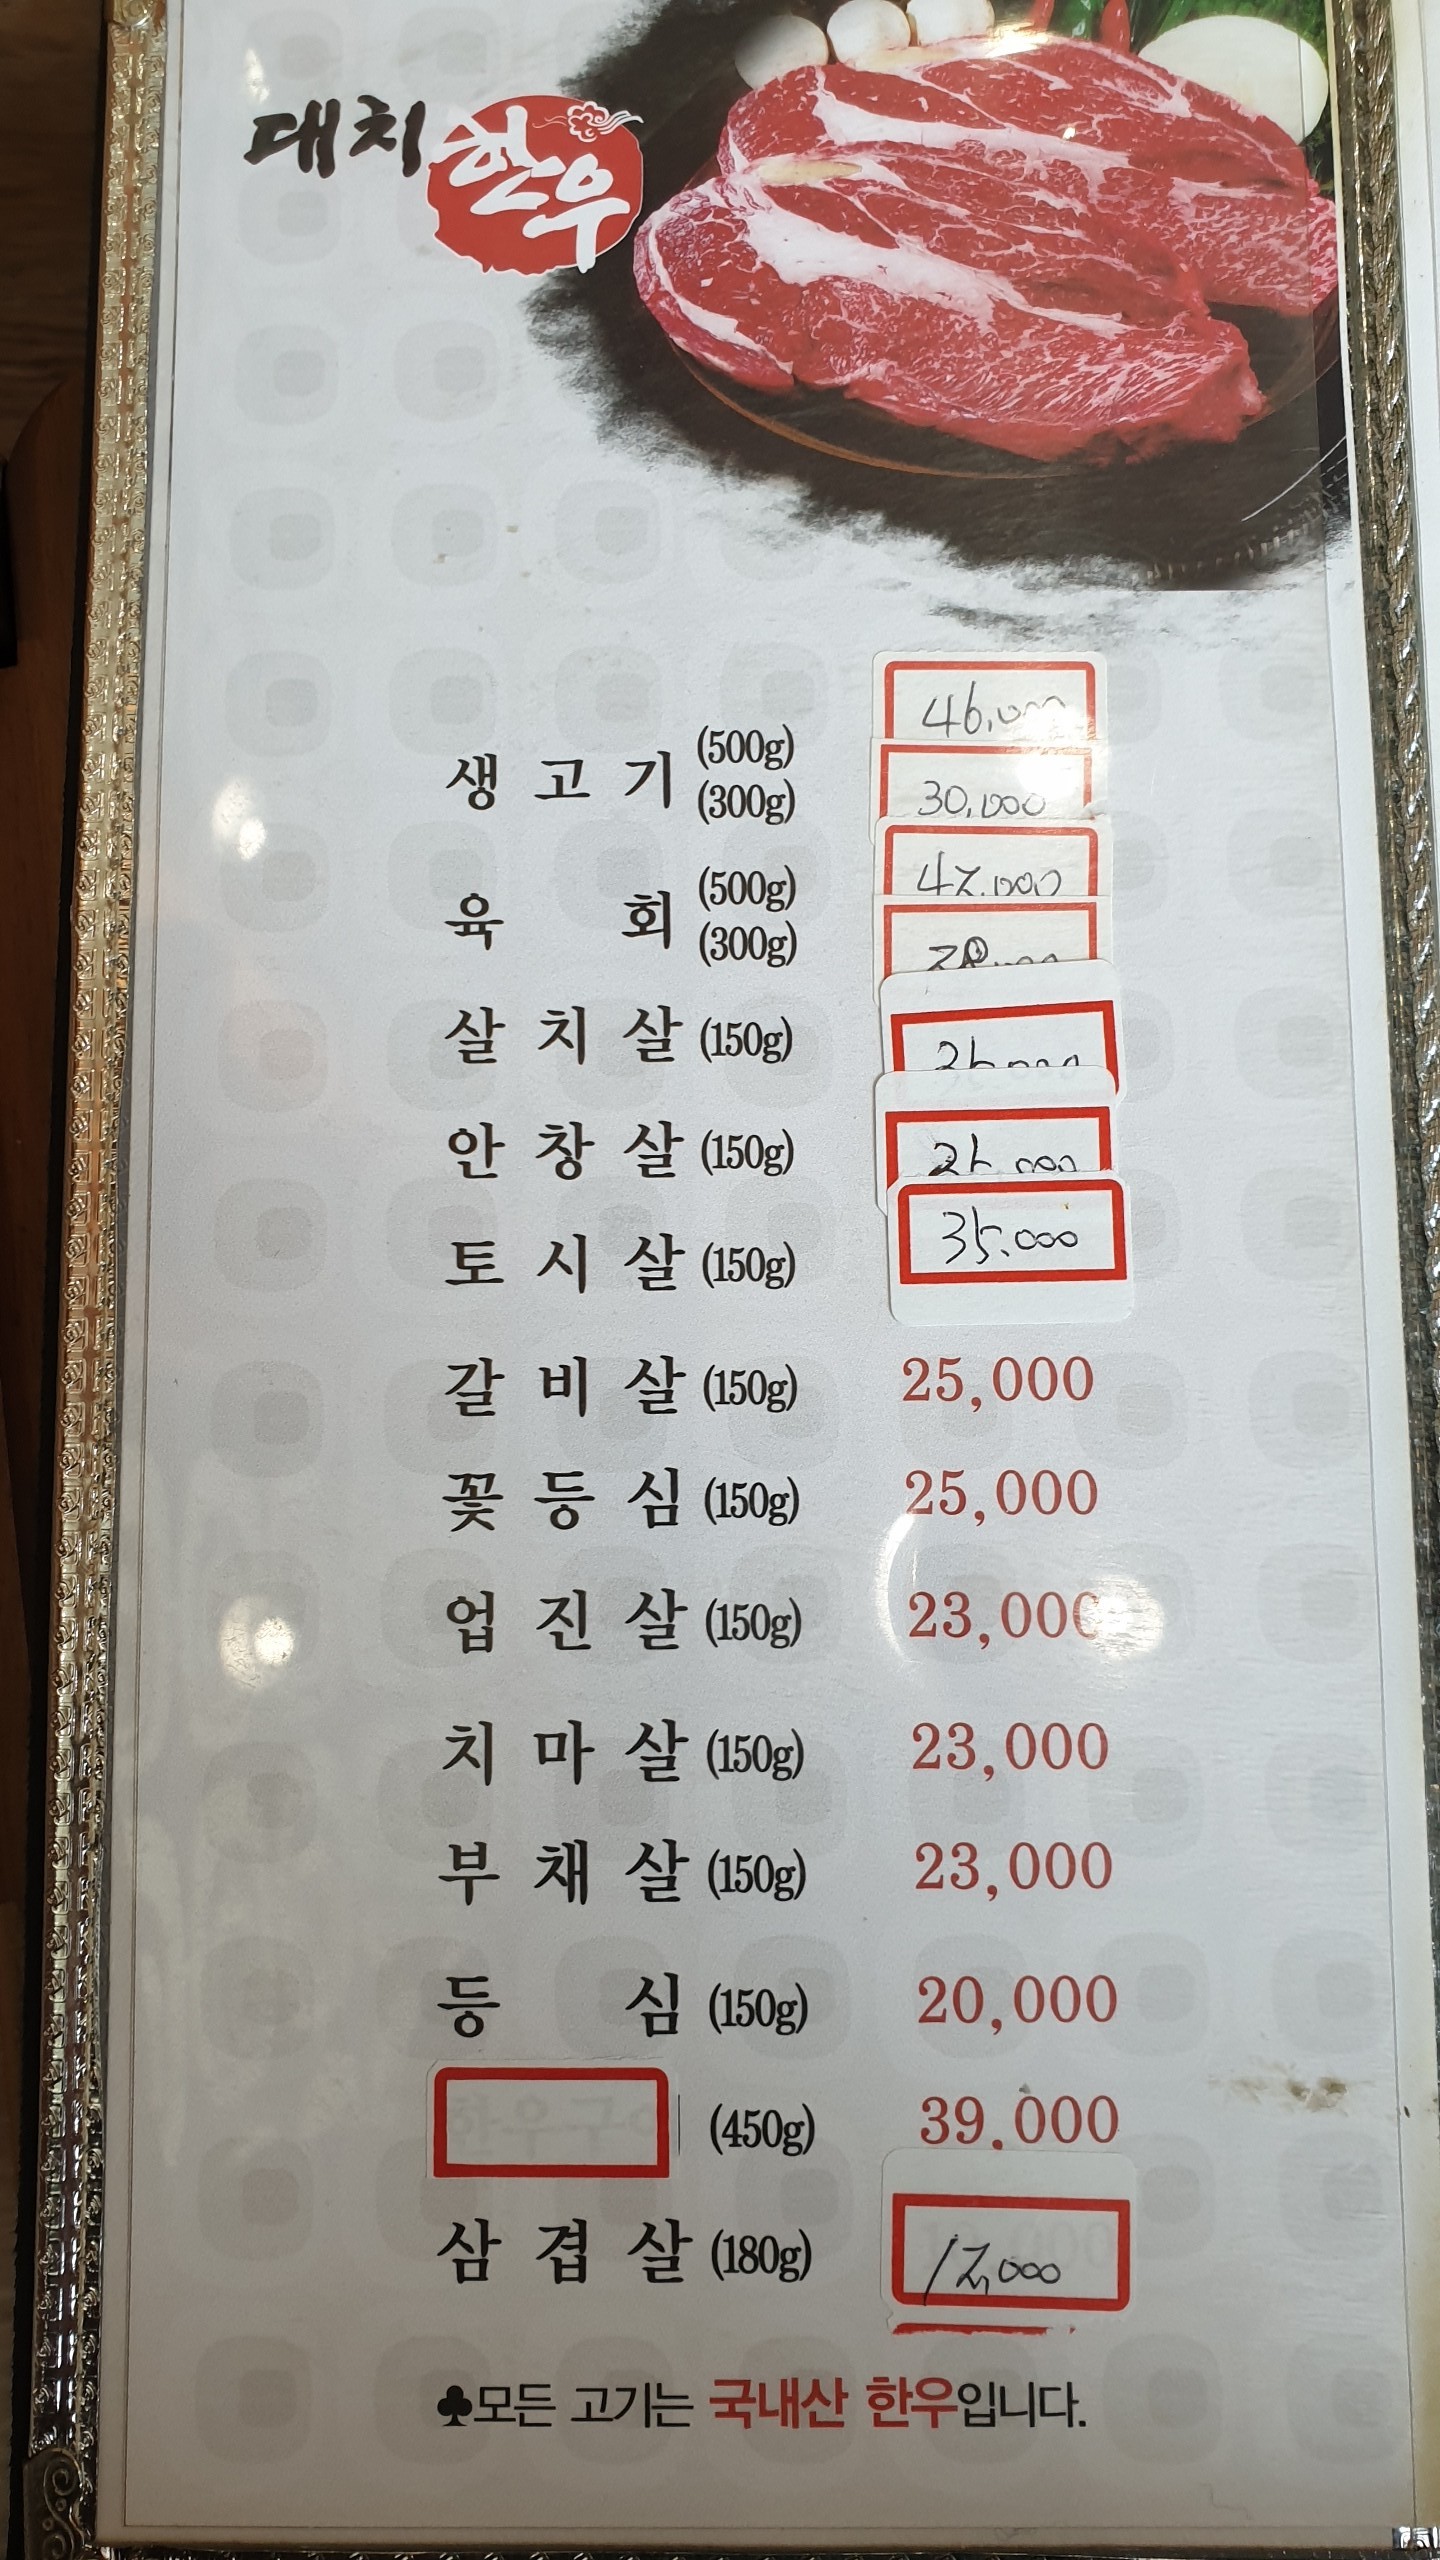 대치한우
생고기 (500g) 46,000
(300g) 30,000
육회 (500g) 42,000
(300g)
살치살 (150g)
안창살 (150g)
토시살 (150g) 35.000
갈비살 (150g) 25,000
꽃등심 (150g) 25,000
업진살 (150g) 23,000
치마살 (150g) 23,000
부채살 (150g) 23,000
등심 (150g) 20,000
(450g) 39,000
삼겹살 (180g) 12,000
♣모든 고기는 국내산 한우입니다.